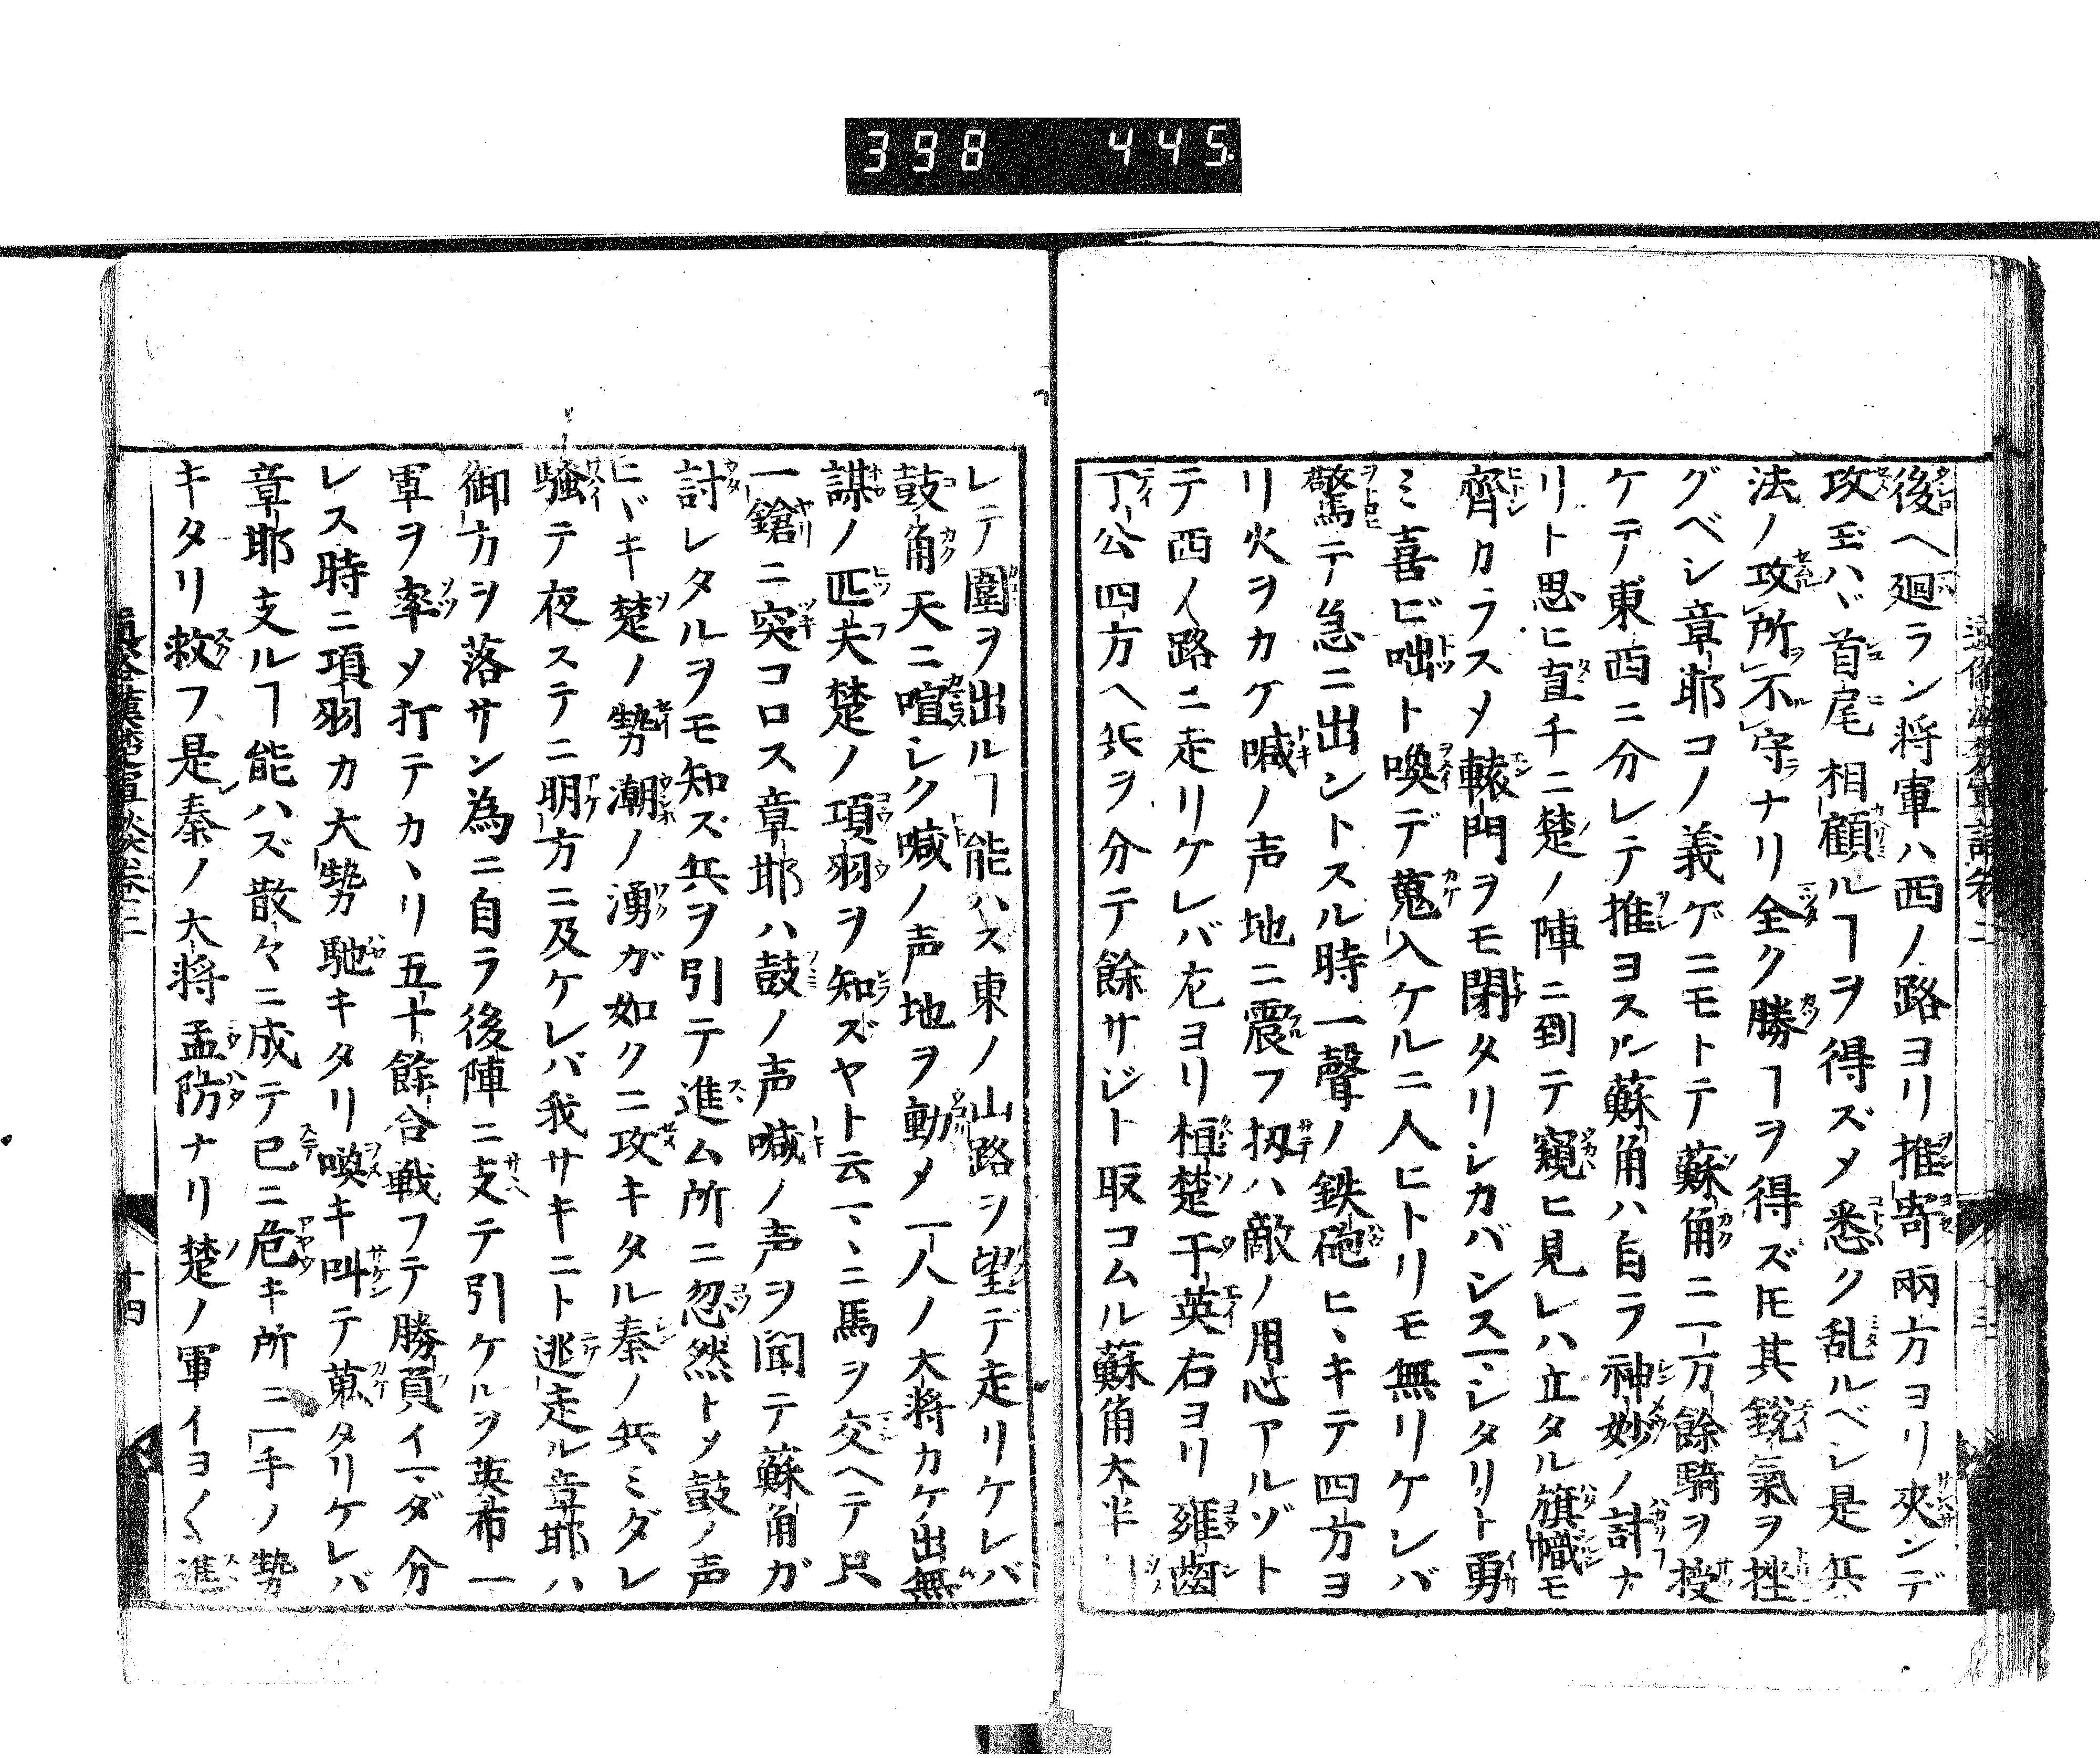 398 445
後ヘ廻ラン将軍ハ西ノ路ヨリ推寄兩方ヨリ夾ンデ
攻玉ハヾ首尾相顧ルヿヲ得ズメ悉ク乱ルベシ是兵
法ノ攻所不守ナリ全ク勝ヿヲ得ズ𪜈其鋭氣ヲ挫
グベシ章邯コノ義ゲニモトテ蘇角ニ一万餘騎ヲ授
ケテ東西ニ分レテ推ヨスル蘇角ハ自ラ神妙ノ計ナ
リト思ヒ直チニ楚ノ陣ニ到テ窺ヒ見レハ立タル旗幟モ
齊カラスメ轅門ヲモ閉タリシカバシスヽシタリト勇
ミ喜ビ咄ト喚デ蒐入ケルニ人ヒトリモ無リケレバ
驚テ急ニ出ントスル時一聲ノ鉄砲ヒヾキテ四方ヨ
リ火ヲカケ喊ノ声地ニ震フ扨ハ敵ノ用心アルゾト
テ西ノ路ニ走リケレバ左ヨリ桓楚于英右ヨリ雍齒
丁公四方ヘ兵ヲ分テ餘サジト取コムル蘇角大半
レテ圍ヲ出ルヿ能ハズ東ノ山路ヲ望デ走リケレバ
鼓角天ニ喧シク喊ノ声地ヲ動メ一人ノ大将カケ出無
謀ノ匹夫楚ノ項羽ヲ知ズヤト云マヽニ馬ヲ交ヘテ只
一鎗ニ突コロス章邯ハ鼓ノ声喊ノ声ヲ聞テ蘇角ガ
討レタルヲモ知ズ兵ヲ引テ進ム所ニ忽然トメ鼓ノ声
ヒヾキ楚ノ勢潮ノ湧ガ如クニ攻キタル秦ノ兵ミダレ
騒テ夜ステニ明方ニ及ケレバ我サキニト逃走ル章邯ハ
御方ヲ落サン為ニ自ラ後陣ニ支テ引ケルヲ英布一
軍ヲ率メ打テカヽリ五十餘合戦フテ勝負イマダ分
レス時ニ項羽カ大勢馳キタリ喚キ叫テ蒐タリケレバ
章邯支ルヿ能ハズ散々ニ成テ已ニ危キ所ニ一手ノ勢
キタリ救フ是秦ノ大将孟防ナリ楚ノ軍イヨ〱進
十四